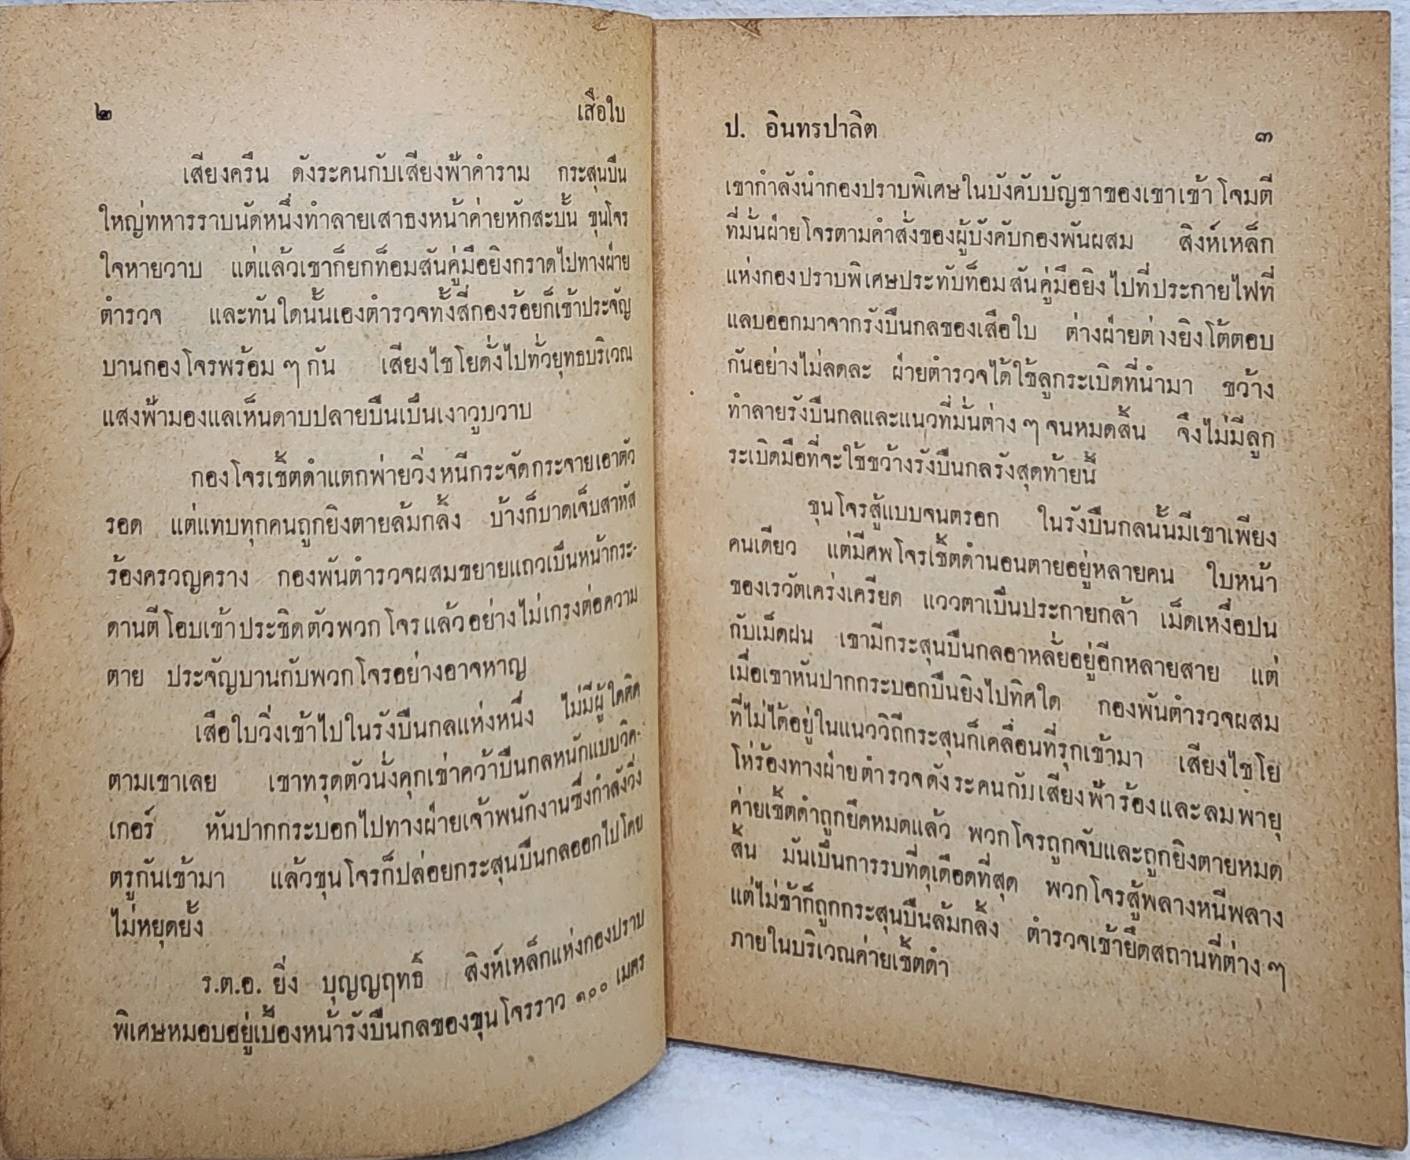 ๒ เสือใบ
เสียงครืน ดังระคนกับเสียงฟ้าคำราม กระสุนปืน
ใหญ่ทหารราบนัดหนึ่งทำลายเสาธงหน้าค่ายหักสะบั้น ขุนโจร
ใจหายวาบ แต่แล้วเขาก็ยกท็อมสันคู่มือยิงกราดไปทางฝ่าย
ตำรวจ และทันใดนั้นเองตำรวจทั้งสี่กองร้อยก็เข้าประจัญ
บานกองโจรพร้อม ๆ กัน เสียงไชโยดั่งไปทั่วยุทธบริเวณ
แสงฟ้ามองแลเห็นดาบปลายปืนเป็นเงาวูบวาบ
กองโจรเชิ้ตดำแตกพ่ายวิ่งหนีกระจัดกระจายเอาตัว
รอด แต่แทบทุกคนถูกยิงตายล้มกลิ้ง บ้างก็บาดเจ็บสาหัส
ร้องครวญคราง กองพันตำรวจผสมขยายแถวเป็นหน้ากระ-
ดานตีโอบเข้าประชิดตัวพวกโจรแล้วอย่างไม่เกรงต่อความ
ตาย ประจัญบานกับพวกโจรอย่างอาจหาญ
เสือใบวิ่งเข้าไปในรังปืนกลแห่งหนึ่ง ไม่มีผู้ใดคิด
ตามเขาเลย เขาทรุดตัวนั่งคุกเข่าคว้าปืนกลหนักแบบวิค-
เกอร์ หันปากกระบอกไปทางฝ่ายเจ้าพนักงานซึ่งกำลังวิ่ง
ตรูกันเข้ามา แล้วขุนโจรก็ปล่อยกระสุนปืนกลออกไปโดย
ไม่หยุดยั้ง
ร.ต.อ. ยิ่ง บุญญฤทธิ์ สิงห์เหล็กแห่งกองปราบ
พิเศษหมอบอยู่เบื้องหน้ารังปืนกลของขุนโจรราว ๑๐๐ เมตร
ป. อินทรปาลิต ๓
เขากำลังนำกองปราบพิเศษในบังคับบัญชาของเขาเข้าโจมตี
ที่มั่นฝ่ายโจรตามคำสั่งของผู้บังคับกองพันผสม สิงห์เหล็ก
แห่งกองปราบพิเศษประทับท็อมสันคู่มือยิงไปที่ประกายไฟที่
แลบออกมาจากรังปืนกลของเสือใบ ต่างฝ่ายต่างยิงโต้ตอบ
กันอย่างไม่ลดละ ฝ่ายตำรวจได้ใช้ลูกระเบิดที่นำมา ขว้าง
ทำลายรังปืนกลและแนวที่มั่นต่าง ๆ จนหมดสิ้น จึงไม่มีลูก
ระเบิดมือที่จะใช้ขว้างรังปืนกลรังสุดท้ายนี้
ขุนโจรสู้แบบจนตรอก ในรังปืนกลนั้นมีเขาเพียง
คนเดียว แต่มีศพโจรเชิ้ตดำนอนตายอยู่หลายคน ใบหน้า
ของเรวัตเคร่งเครียด แววตาเป็นประกายกล้า เม็ดเหงื่อปน
กับเม็ดฝน เขามีกระสุนปืนกลอาหลั้ยอยู่อีกหลายสาย แต่
เมื่อเขาหันปากกระบอกปืนยิงไปทิศใด กองพันตำรวจผสม
ที่ไม่ได้อยู่ในแนววิถีกระสุนก็เคลื่อนที่รุกเข้ามา เสียงไชโย
โห่ร้องทางฝ่ายตำรวจดังระคนกับเสียงฟ้าร้องและลมพายุ
ค่ายเชิ้ตดำถูกยึดหมดแล้ว พวกโจรถูกจับและถูกยิงตายหมด
สิ้น มันเป็นการรบที่ดุเดือดที่สุด พวกโจรสู้พลางหนีพลาง
แต่ไม่ช้าก็ถูกกระสุนปืนล้มกลิ้ง ตำรวจเข้ายึดสถานที่ต่าง ๆ
ภายในบริเวณค่ายเชิ้ตดำ